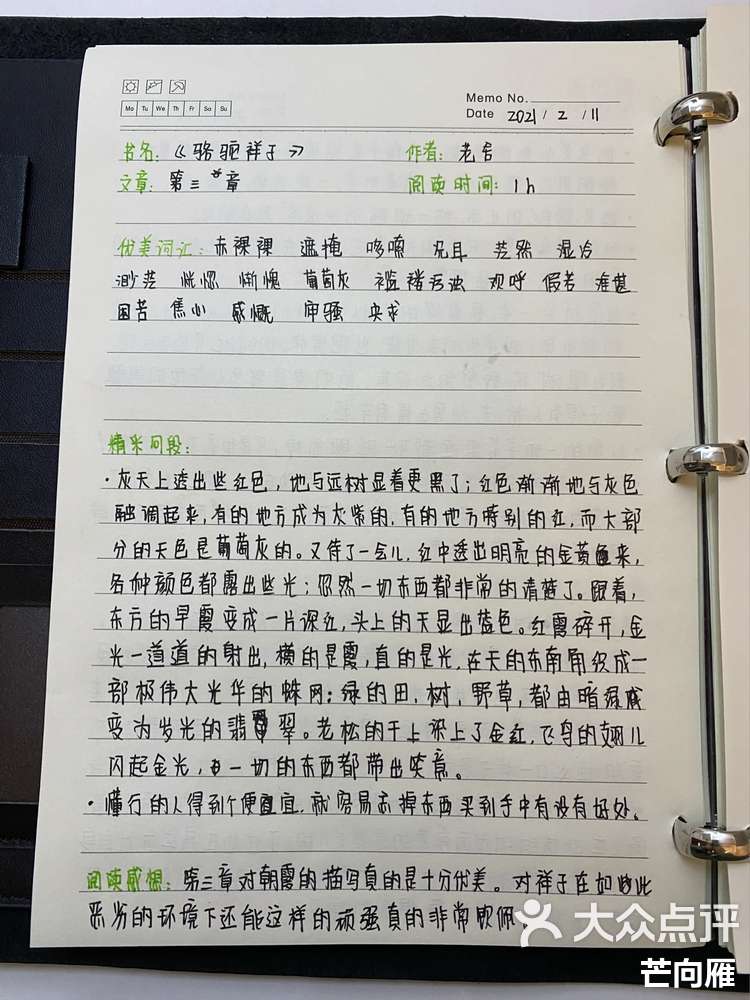 Mo Tu We Th Fr Sa Su
Memo No.
Date 2021 / 2 / 11
书名：《骆驼祥子》 作者：老舍
文章：第三章 阅读时间：1h
优美词汇：赤裸裸 遮掩 哆嗦 兄耳 茫然 湿冷
渺茫 恍惚 惭愧 葡萄灰 褴褛污浊 欢呼 假若 难堪
困苦 焦心 感慨 牢骚 央求
精采句段：
·灰天上透出些红色，地与远树显着更黑了；红色渐渐地与灰色
融调起来，有的地方成为灰紫的，有的地方特别的红，而大部
分的天色是葡萄灰的。又待了一会儿，红中透出明亮的金黄色来，
各种颜色都露出些光；忽然一切东西都非常的清楚了。跟着，
东方的早霞变成一片深红，头上的天显出蓝色。红霞碎开，金
光一道道的射出，横的是霞，直的是光，在天的东南角织成一
部极伟大光华的蛛网：绿的田，树，野草，都由暗绿
变为发光的翡翠。老松的干上染上了金红，飞鸟的翅儿
闪起金光，一切的东西都带出笑意。
·懂行的人得到个便宜，就容易忘掉东西买到手中有没有好处。
阅读感想：第三章对朝霞的描写真的是十分优美。对祥子在如此
恶劣的环境下还能这样的顽强真的非常钦佩。
大众点评
芒向雁